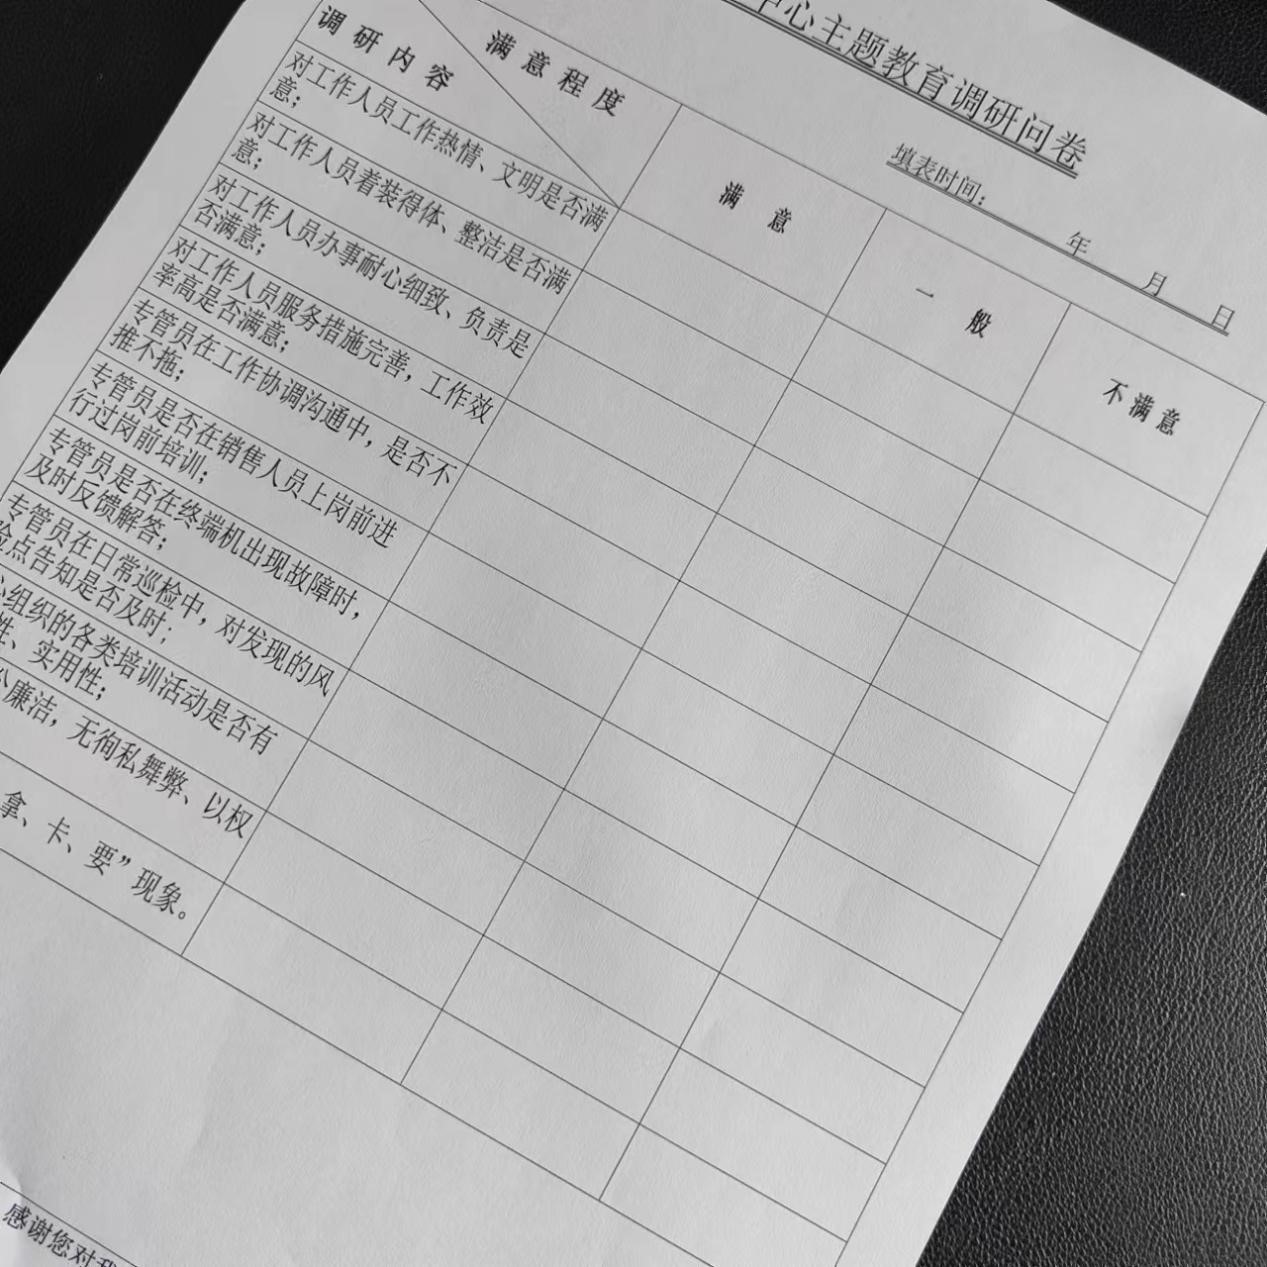 中心主题教育调研问卷
填表时间： 年 月 日
满意程度
调研内容
满意
一般
不满意
对工作人员工作热情、文明是否满
意；
对工作人员着装得体、整洁是否满
意；
对工作人员办事耐心细致、负责是
否满意；
对工作人员服务措施完善，工作效
率高是否满意；
专管员在工作协调沟通中，是否不
推不拖；
专管员是否在销售人员上岗前进
行过岗前培训；
专管员是否在终端机出现故障时，
及时反馈解答；
专管员在日常巡检中，对发现的风
险点告知是否及时；
心组织的各类培训活动是否有
性、实用性；
公廉洁，无徇私舞弊、以权
拿、卡、要”现象。
感谢您对我